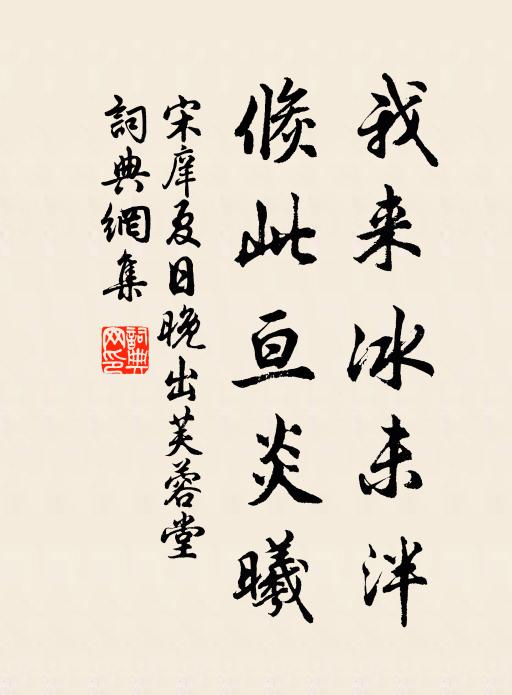 我来冰未泮
倐此亘炎曦
宋庠夏日晚出芙蓉堂
詞典網集
詞典网印